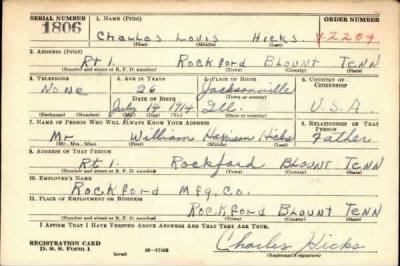 SERIAL NUMBER 1. NAME (Print) ORDER NUMBER
1806 Charles Louis Hicks V2209
(First) (Middle) (Last)
2. ADDRESS (Print)
Rt 1. Rockford Blount Tenn
(Number and street or R. F. D. number) (Town) (County) (State)
3. TELEPHONE 4. AGE IN YEARS 5. PLACE OF BIRTH 6. COUNTRY OF CITIZENSHIP
None 26 Jacksonville
DATE OF BIRTH (Town or county)
July 14 1914 Ill. U.S.A.
(Exchange) (Number) (Mo.) (Day) (Yr.) (State or country)
7. NAME OF PERSON WHO WILL ALWAYS KNOW YOUR ADDRESS 8. RELATIONSHIP OF THAT PERSON
Mr William Harrison Hicks Father
(Mr., Mrs., Miss) (First) (Middle) (Last)
9. ADDRESS OF THAT PERSON
Rt. 1. Rockford Blount Tenn
(Number and street or R. F. D. number) (Town) (County) (State)
10. EMPLOYER'S NAME
Rockford Mfg. Co.
11. PLACE OF EMPLOYMENT OR BUSINESS
Rockford Blount Tenn
(Number and street or R. F. D. number) (Town) (County) (State)
I AFFIRM THAT I HAVE VERIFIED ABOVE ANSWERS AND THAT THEY ARE TRUE.
REGISTRATION CARD
D. S. S. Form 1 16—17105 Charles Hicks
(Registrant's signature)